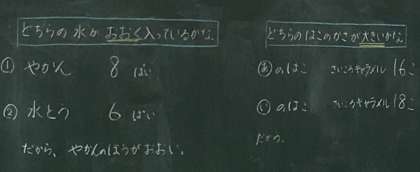 どちらの水がおおく入っているかな。
① やかん 8 はい
② 水とう 6 ぱい
だから、やかんのほうがおおい。
どちらのはこのかさが大きいかな。
あのはこ さいころキャラメル 16こ
いのはこ さいころキャラメル 18こ
だから、